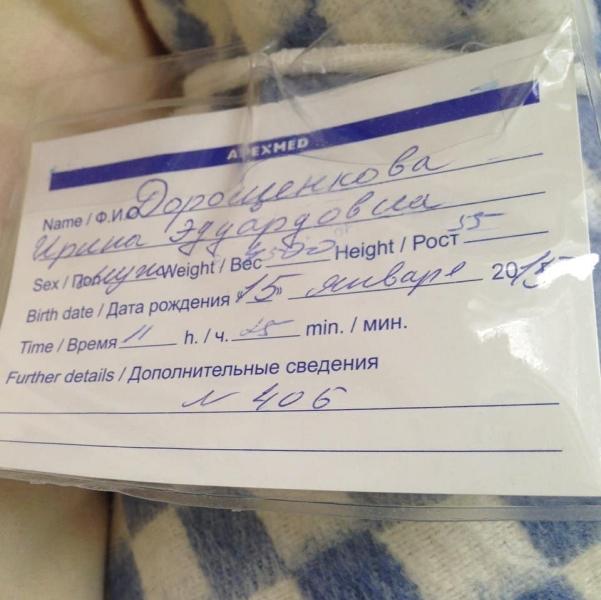 APEXMED
Name / Ф.И.О Дорощенкова
Ирина Эдуардовна
Sex / Пол муж Weight / Вес 4500 Height / Рост 55
Birth date / Дата рождения "15" января 2015
Time / Время 11 h. / ч. 25 min. / мин.
Further details / Дополнительные сведения
N 406